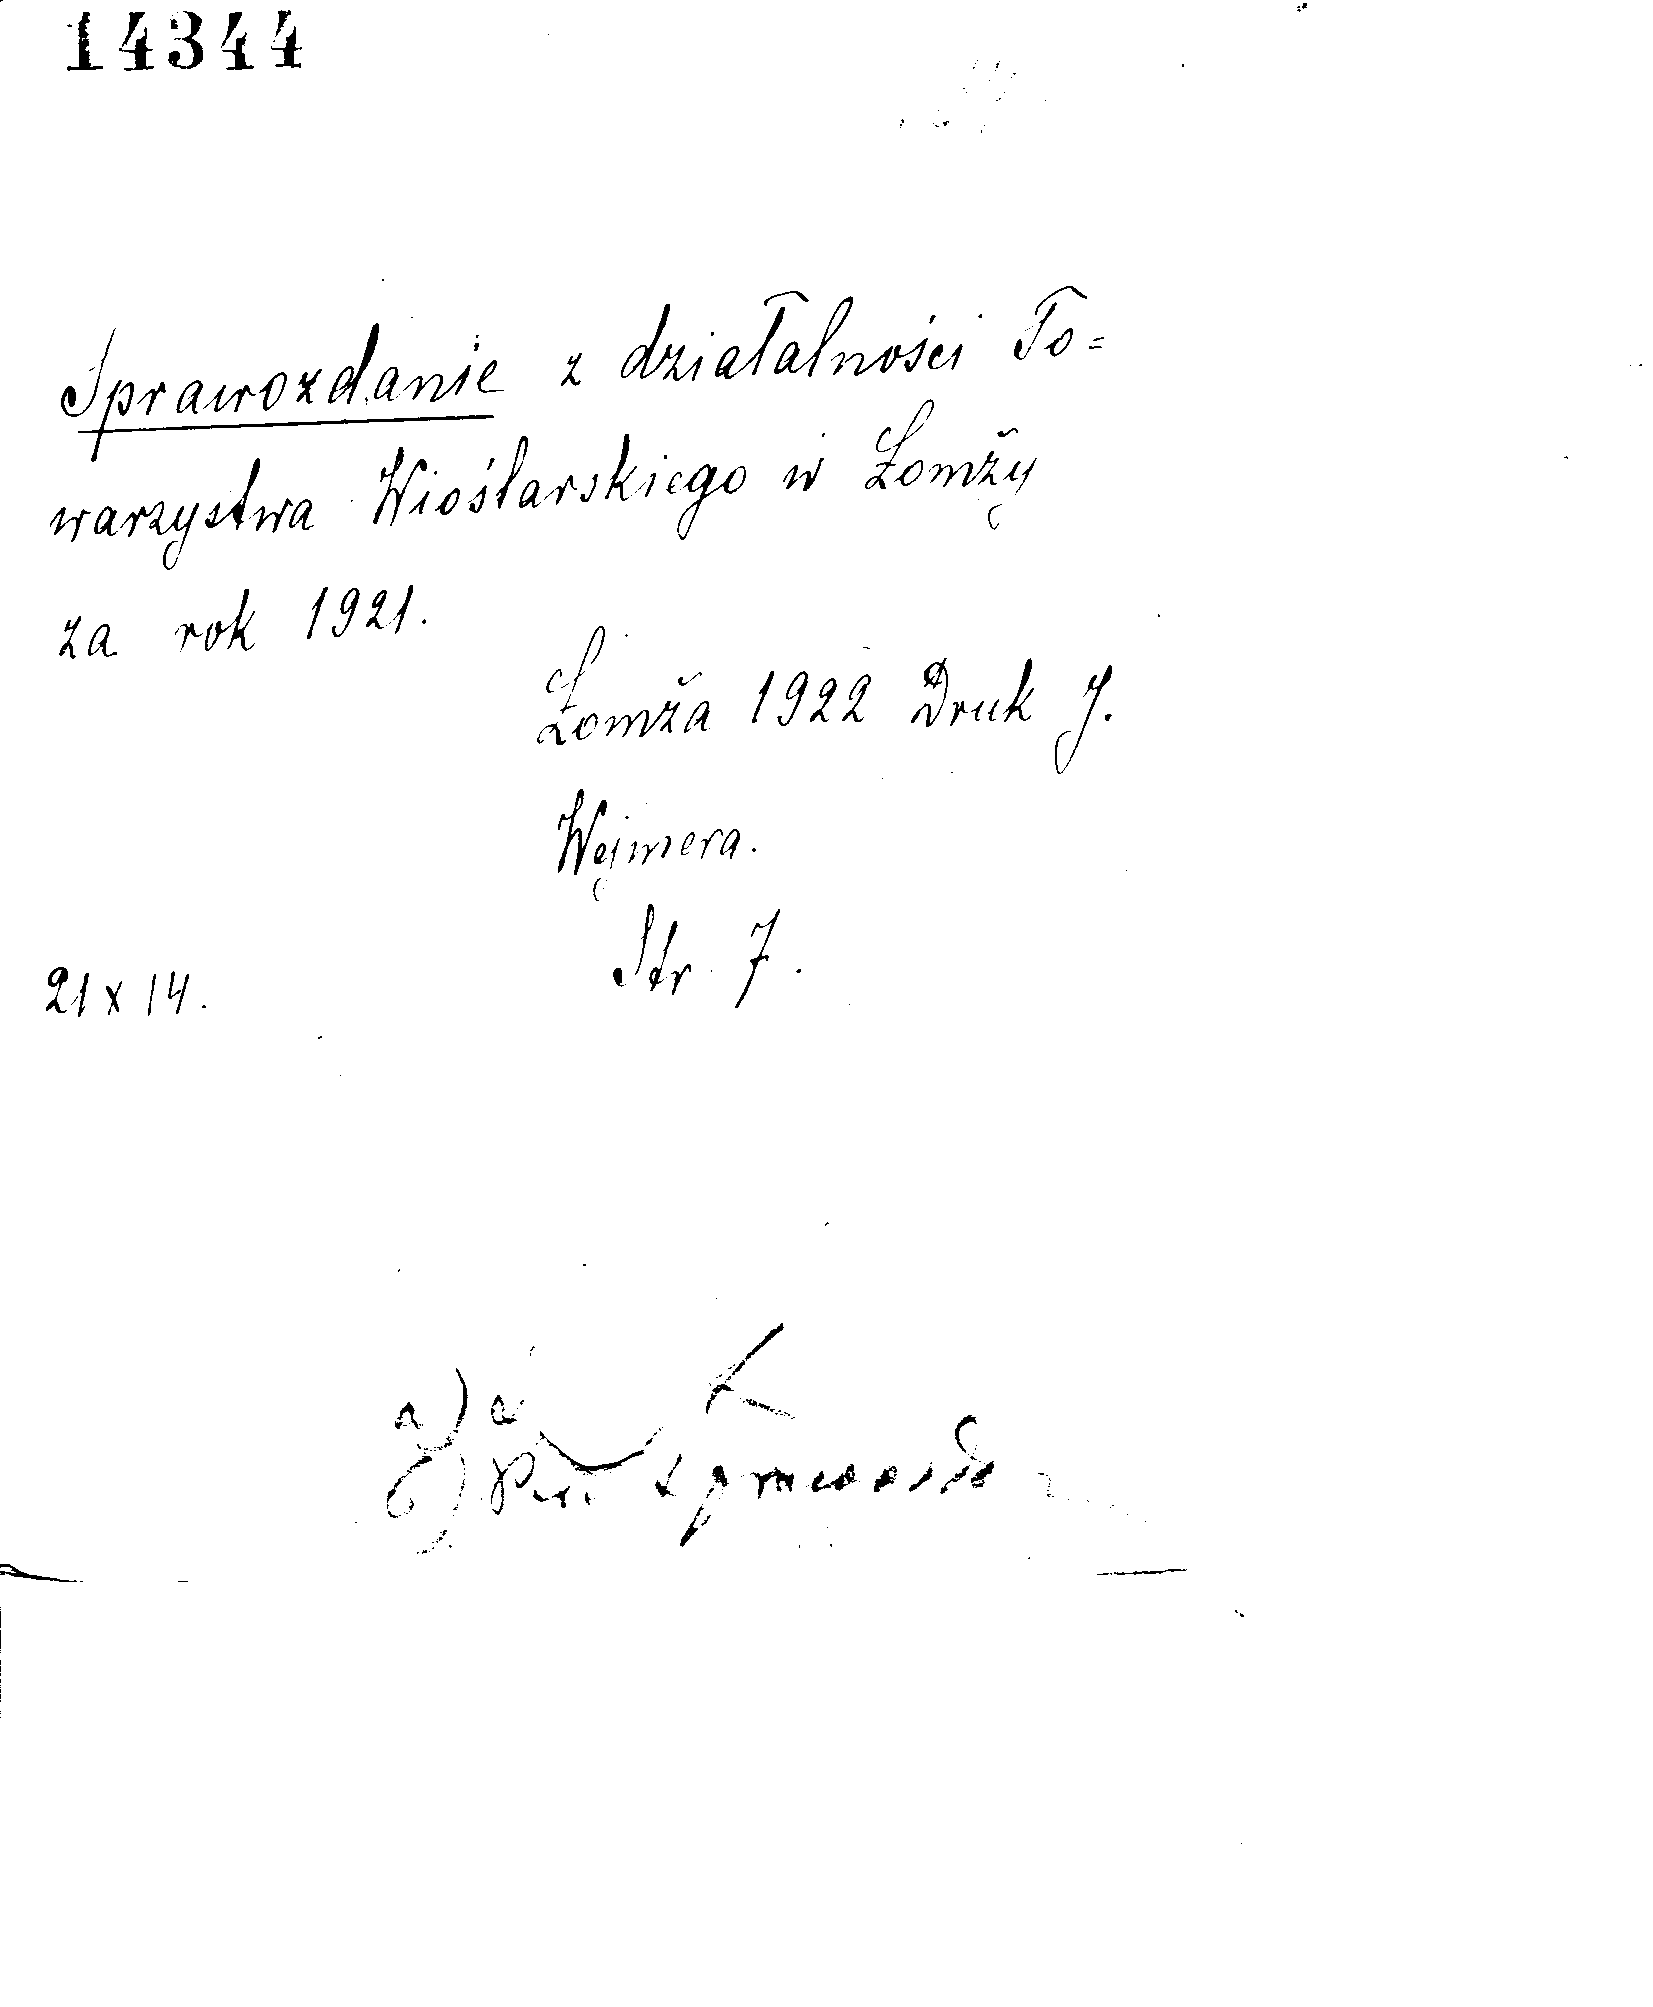 14344
Sprawozdanie z działalności To=
warzystwa Wioślarskiego w Łomży
za rok 1921.
Łomża 1922 Druk J.
Wejmera.
Str. 7.
21 x 14.
a)